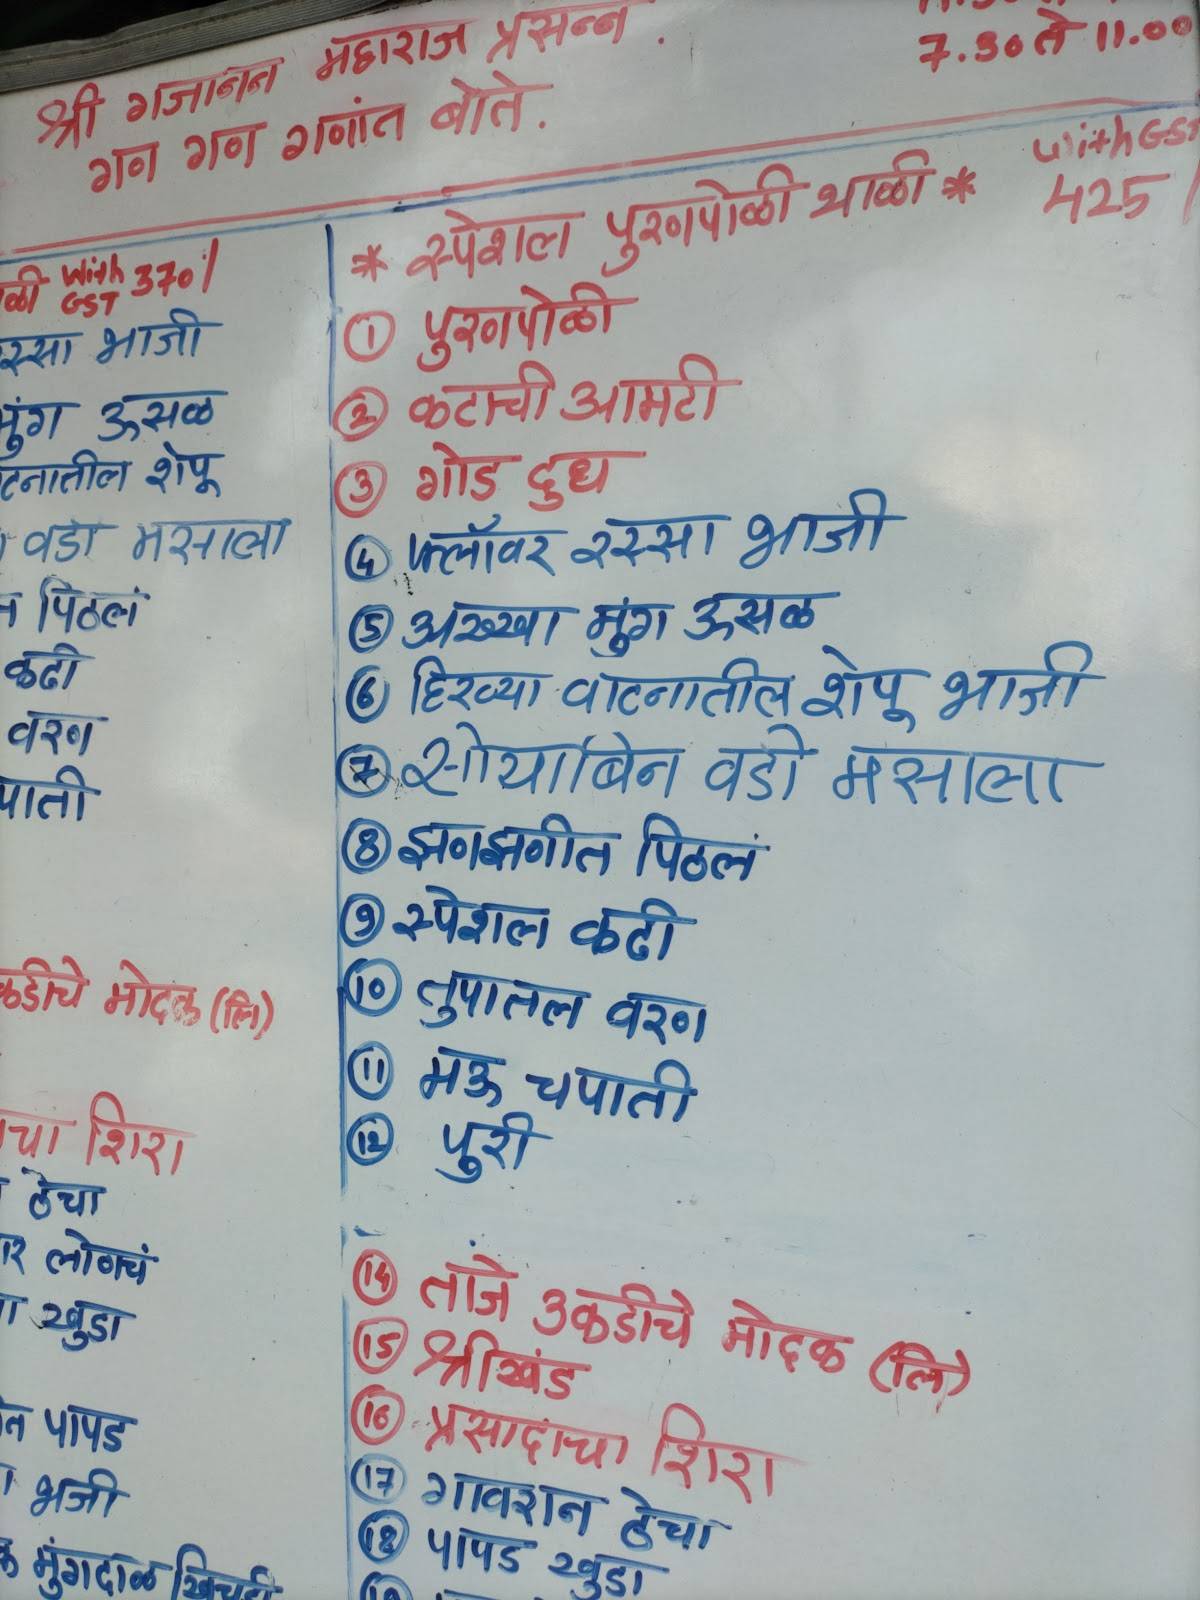 श्री गजानन महाराज प्रसन्न.
गण गण गणांत बोते.
7.30 ते 11.00
With GST 370/
रस्सा भाजी
मुंग ऊसळ
शेपू
वडी मसाला
पिठलं
कढी
वरण
मोदक (लि)
शिरा
ठेचा
लोणचं
खुडा
पापड
भजी
मुंगदाळ खिचडी
* स्पेशल पुरणपोळी थाळी * With GST 425/
1 पुरणपोळी
2 कटाची आमटी
3 गोड दुध
4 फ्लॉवर रस्सा भाजी
5 अख्खा मुंग ऊसळ
6 हिरव्या वाटनातील शेपू भाजी
7 सोयाबिन वडी मसाला
8 झणझणीत पिठलं
9 स्पेशल कढी
10 तुपातल वरण
11 मऊ चपाती
12 पुरी
14 ताजे उकडीचे मोदक (लि)
15 श्रीखंड
16 प्रसादाचा शिरा
17 गावरान ठेचा
18 पापड खुडा